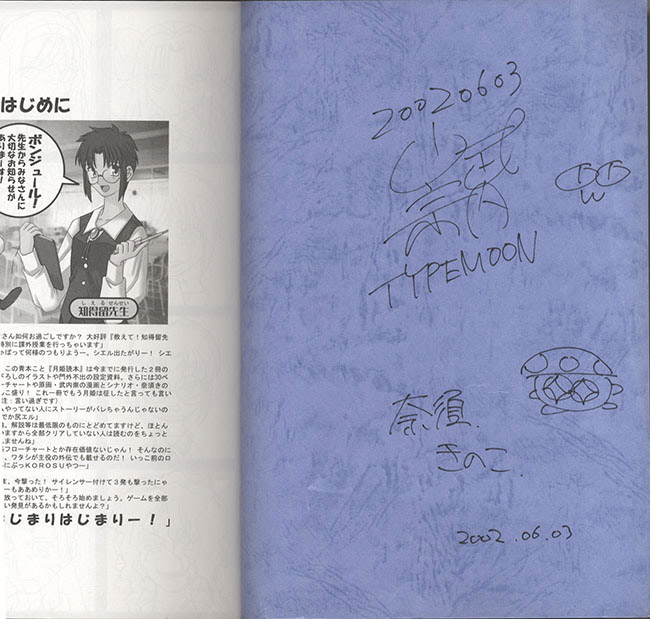 はじめに
ボンジュール!
先生からみなさんに
大切なお知らせが
ありまーす!
しえるせんせい
知得留先生
さん如何お過ごしですか? 大好評『教えて!知得留先
特別に課外授業を行っちゃいます」
ゃばって何様のつもりよう一。シエル出たがりー! シエ
この青本こと『月姫読本』は今までに発行した2冊の
ろしのイラストや門外不出の設定資料。さらには30ペ
ーチャートや原画・武内崇の漫画とシナリオ・奈須きの
んこ盛り! これ一冊でもう月姫は征したと言っても言い
注:言い過ぎです)
ムやってない人にストーリーがバレちゃうんじゃないの
でか尻エル」
、解説等は最低限のものにとどめてますけど、ほとん
いますから全部クリアしていない人は読むのをちょっと
しれませんね」
らフローチャートとか存在価値ないじゃん! そんなのに
、ワタシが主役の外伝でも載せるのだ! いっこ前のロ
にぶっKOROSUやつー」
、今撃った! サイレンサー付けて3発も撃ったにゃ
ーもああめりかー!」
放っておいて、そろそろ始めましょう。ゲームを全部
い発見があるかもしれませんよ?」
じまりはじまりー!」
20020603
TYPEMOON
奈須
きのこ
2002.06.03